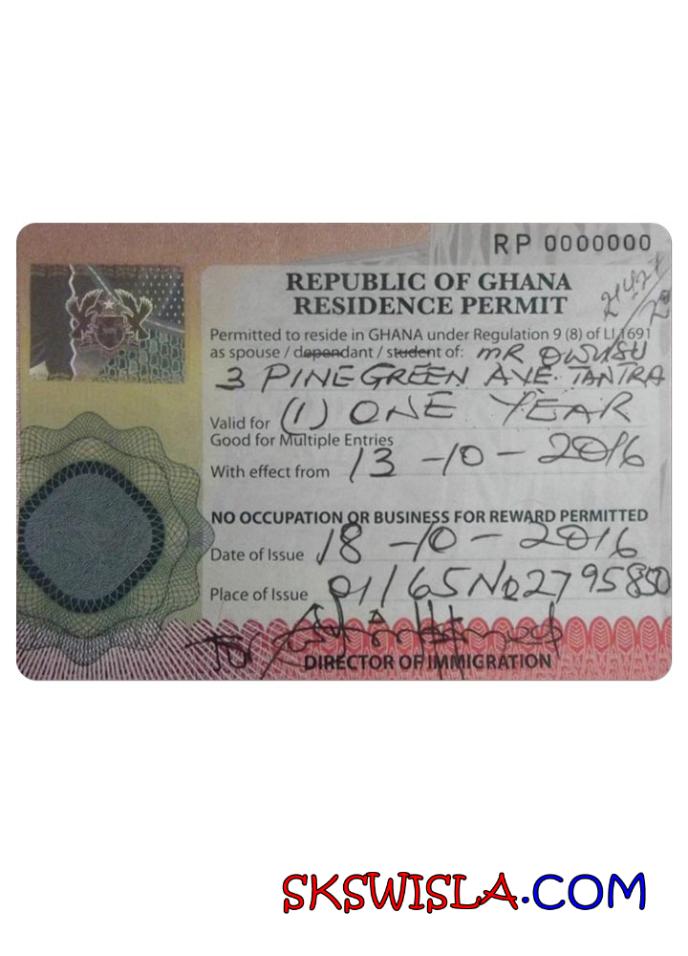 RP 0000000
REPUBLIC OF GHANA
RESIDENCE PERMIT
Permitted to reside in GHANA under Regulation 9 (8) of LI 1691
as spouse / dependant / student of: MR OWUSU
3 PINEGREEN AVE. TANTRA
Valid for (1) ONE YEAR
Good for Multiple Entries
With effect from 13-10-2016
NO OCCUPATION OR BUSINESS FOR REWARD PERMITTED
Date of Issue 18-10-2016
Place of Issue 01/165 No 2795850
DIRECTOR OF IMMIGRATION
SKSWISLA.COM